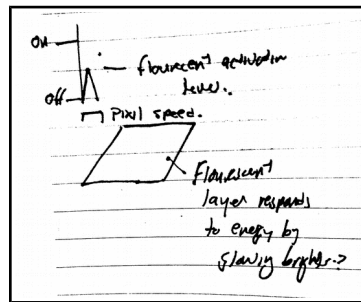 on
flourecent activation
level.
off
Pixil speed.
Flourescent
layer responds
to energy by
glowing brighter?